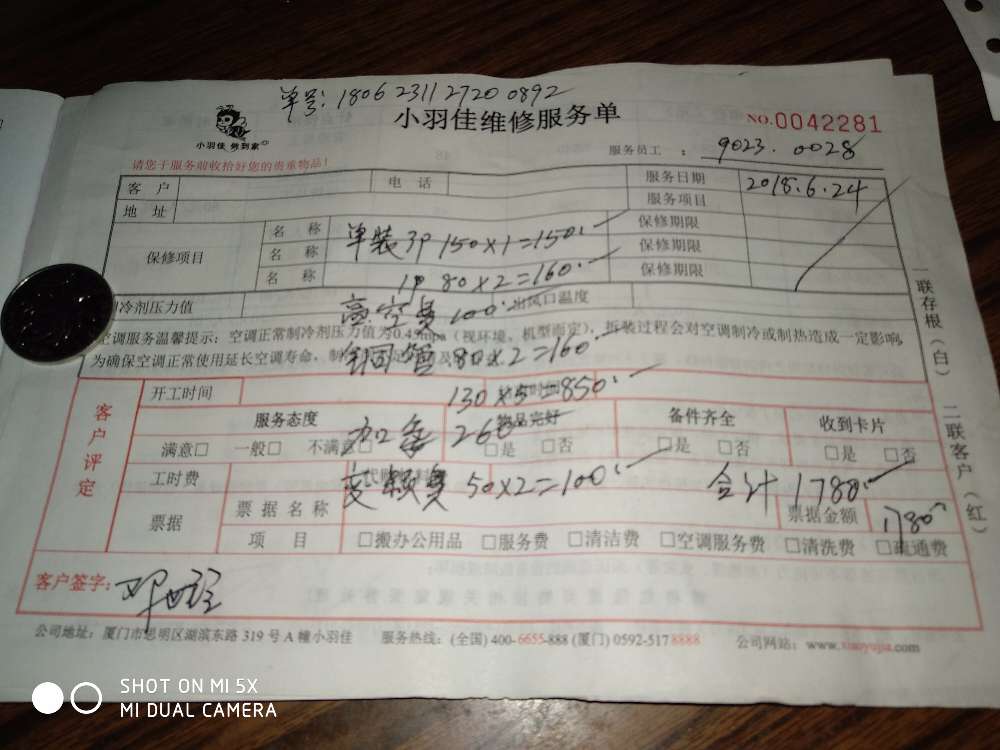 单号: 1806 2311 2720 0892
小羽佳 努到家
小羽佳维修服务单
NO.0042281
请您于服务前收拾好您的贵重物品!
服务员工 : 9023.0028
客户 电话 服务日期 2018.6.24
地址 服务项目
保修项目 名称 单装3P 150×1=150. 保修期限
名称 1P 80×2=160. 保修期限
名称 保修期限
制冷剂压力值 高空费 100. 出风口温度
空调服务温馨提示: 空调正常制冷剂压力值为0.45mpa (视环境、机型而定), 拆装过程会对空调制冷或制热造成一定影响,
为确保空调正常使用延长空调寿命, 制
铜管 80×2=160.
客户评定
开工时间 130×5=850.
服务态度 物品完好 备件齐全 收到卡片
满意□ 一般□ 不满意□ □是 □否 □是 □否 □是 □否
加 260
工时费 50×2=100. 合计 1780.
票据 票据名称 票据金额 1780
项目 □搬办公用品 □服务费 □清洁费 □空调服务费 □清洗费 □疏通费
客户签字:
一联存根(白) 二联客户(红)
公司地址: 厦门市思明区湖滨东路 319 号 A 幢小羽佳 服务热线: (全国) 400-6655-888 (厦门) 0592-517 8888 公司网站: www.xiaoyujia.com
SHOT ON MI 5X
MI DUAL CAMERA